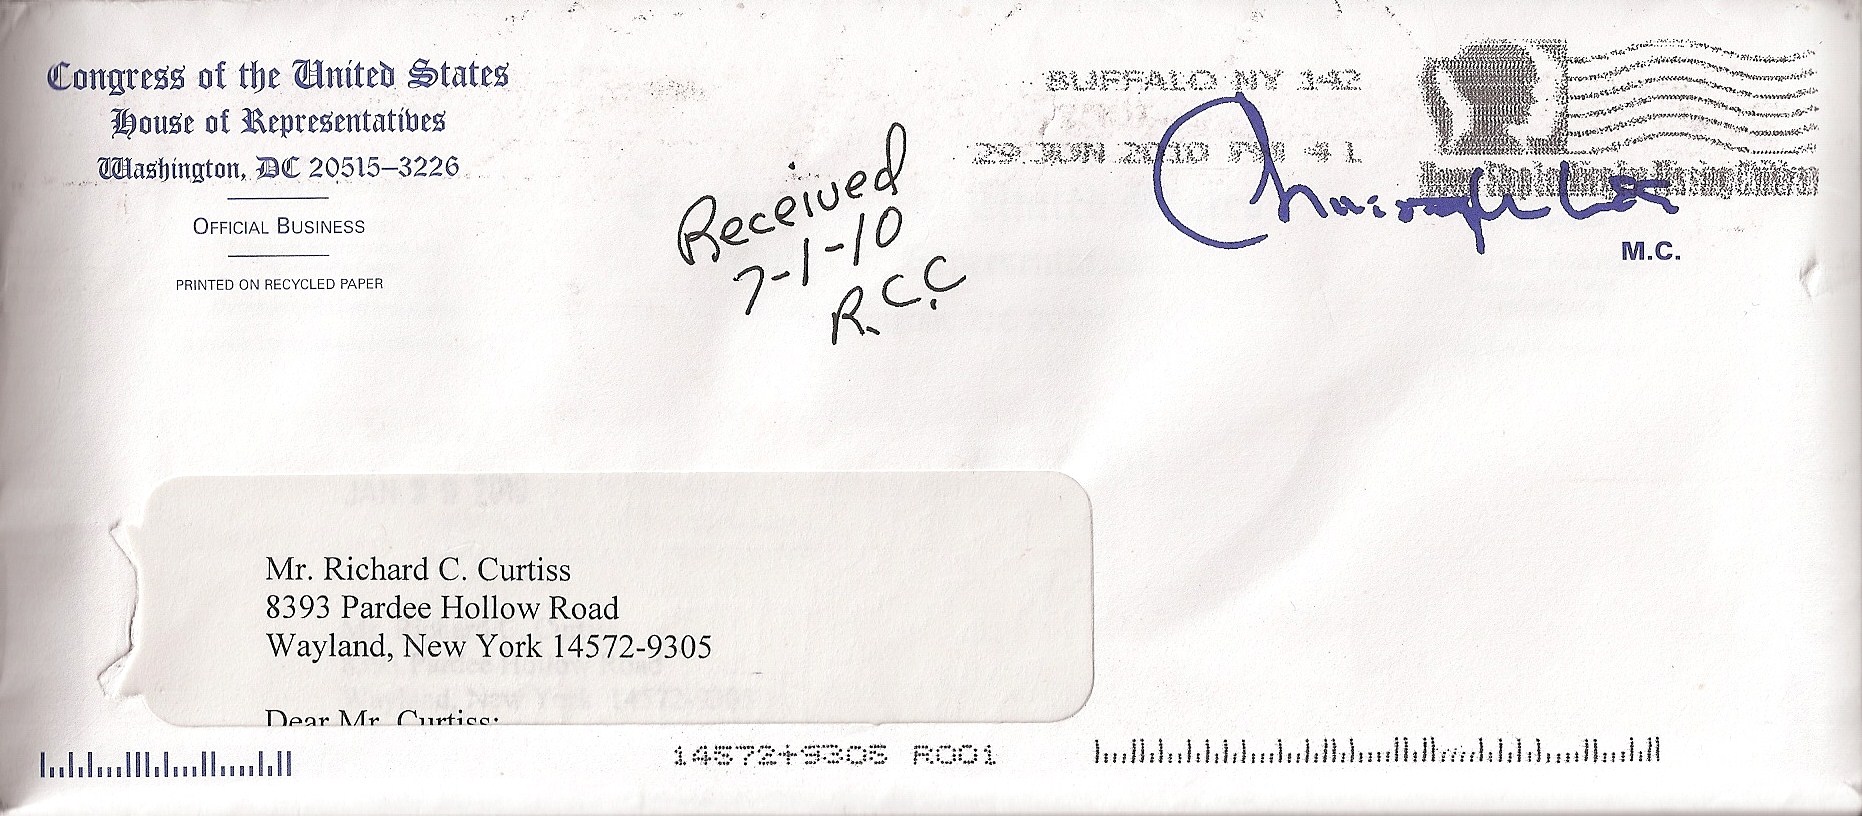 Congress of the United States
House of Representatives
Washington, DC 20515–3226
OFFICIAL BUSINESS
PRINTED ON RECYCLED PAPER
BUFFALO NY 142
29 JUN 2010 PM 4 L
M.C.
Received
7-1-10
R.C.C
Mr. Richard C. Curtiss
8393 Pardee Hollow Road
Wayland, New York 14572-9305
Dear Mr. Curtiss:
14572+9305 R001